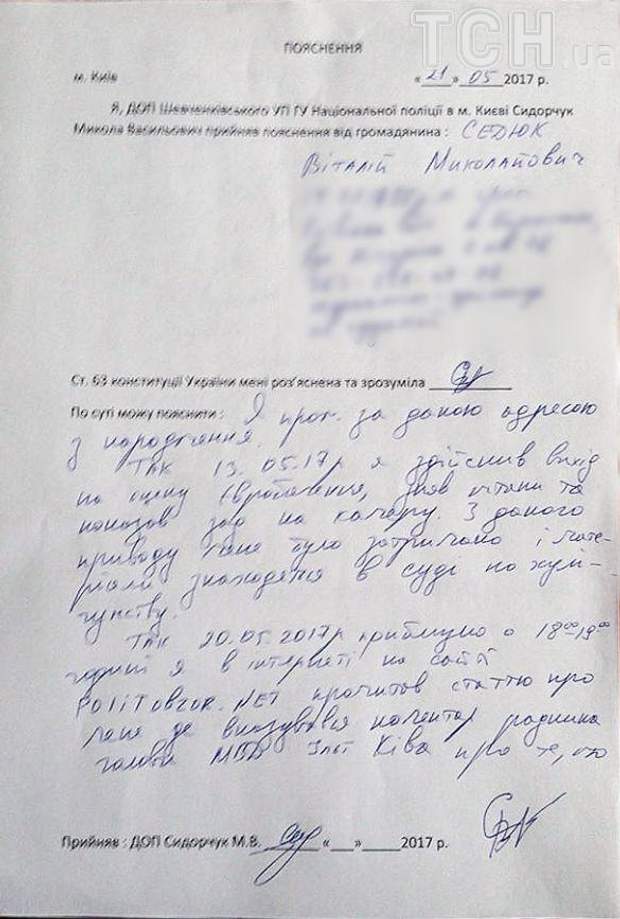 ТСН.ua
ПОЯСНЕННЯ
м. Київ «21» 05 2017 р.
Я, ДОП Шевченківського УП ГУ Національної поліції в м. Києві Сидорчук
Микола Васильович прийняв пояснення від громадянина : СЕДЮК
Віталій Миколайович
Ст. 63 конституції України мені роз'яснена та зрозуміла
По суті можу пояснити : Я прож. за даною адресою
з народження.
Так 13.05.17р я здійснив вихід
на сцену Євробачення, зняв штани та
показав зад на камеру. З даного
приводу мене було затримано і мате-
ріали знаходятся в суді по хулі-
гунству.
Так 20.05.2017р приблизно о 18⁰⁰-19⁰⁰
годині я в інтернеті на сайті
POLITobzor.NET прочитав статтю про
мене де висдував коментар радника
голови МВД Ілля Ківа про те, що
Прийняв : ДОП Сидорчук М.В. «__»_____2017 р.